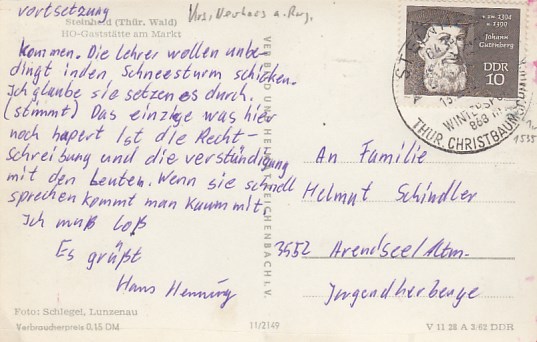 vortsetzung
Steinheid (Thür. Wald)
HO-Gaststätte am Markt
kommen. Die Lehrer wollen unbe-
dingt inden, Schneesturm schicken.
Ich glaube sie setzen es durch.
(stimmt) Das einzige was hier
noch hapert Ist die Recht-
schreibung und die verständigung
mit den Leuten. Wenn sie schnell
sprechen kommt man kaum mit.
Ich muß loß
Es grüßt
Hans Henning
Foto: Schlegel, Lunzenau
Verbraucherpreis 0,15 DM
11/2149
REICHENBACH I. V.
Johann
Gutenberg
DDR
10
WINTERSPO
868 m
THÜR. CHRISTBAUM
An Familie
Helmut Schindler
3552 Arendsee/Altm.
Jugendherberge
V 11 28 A 3/62 DDR